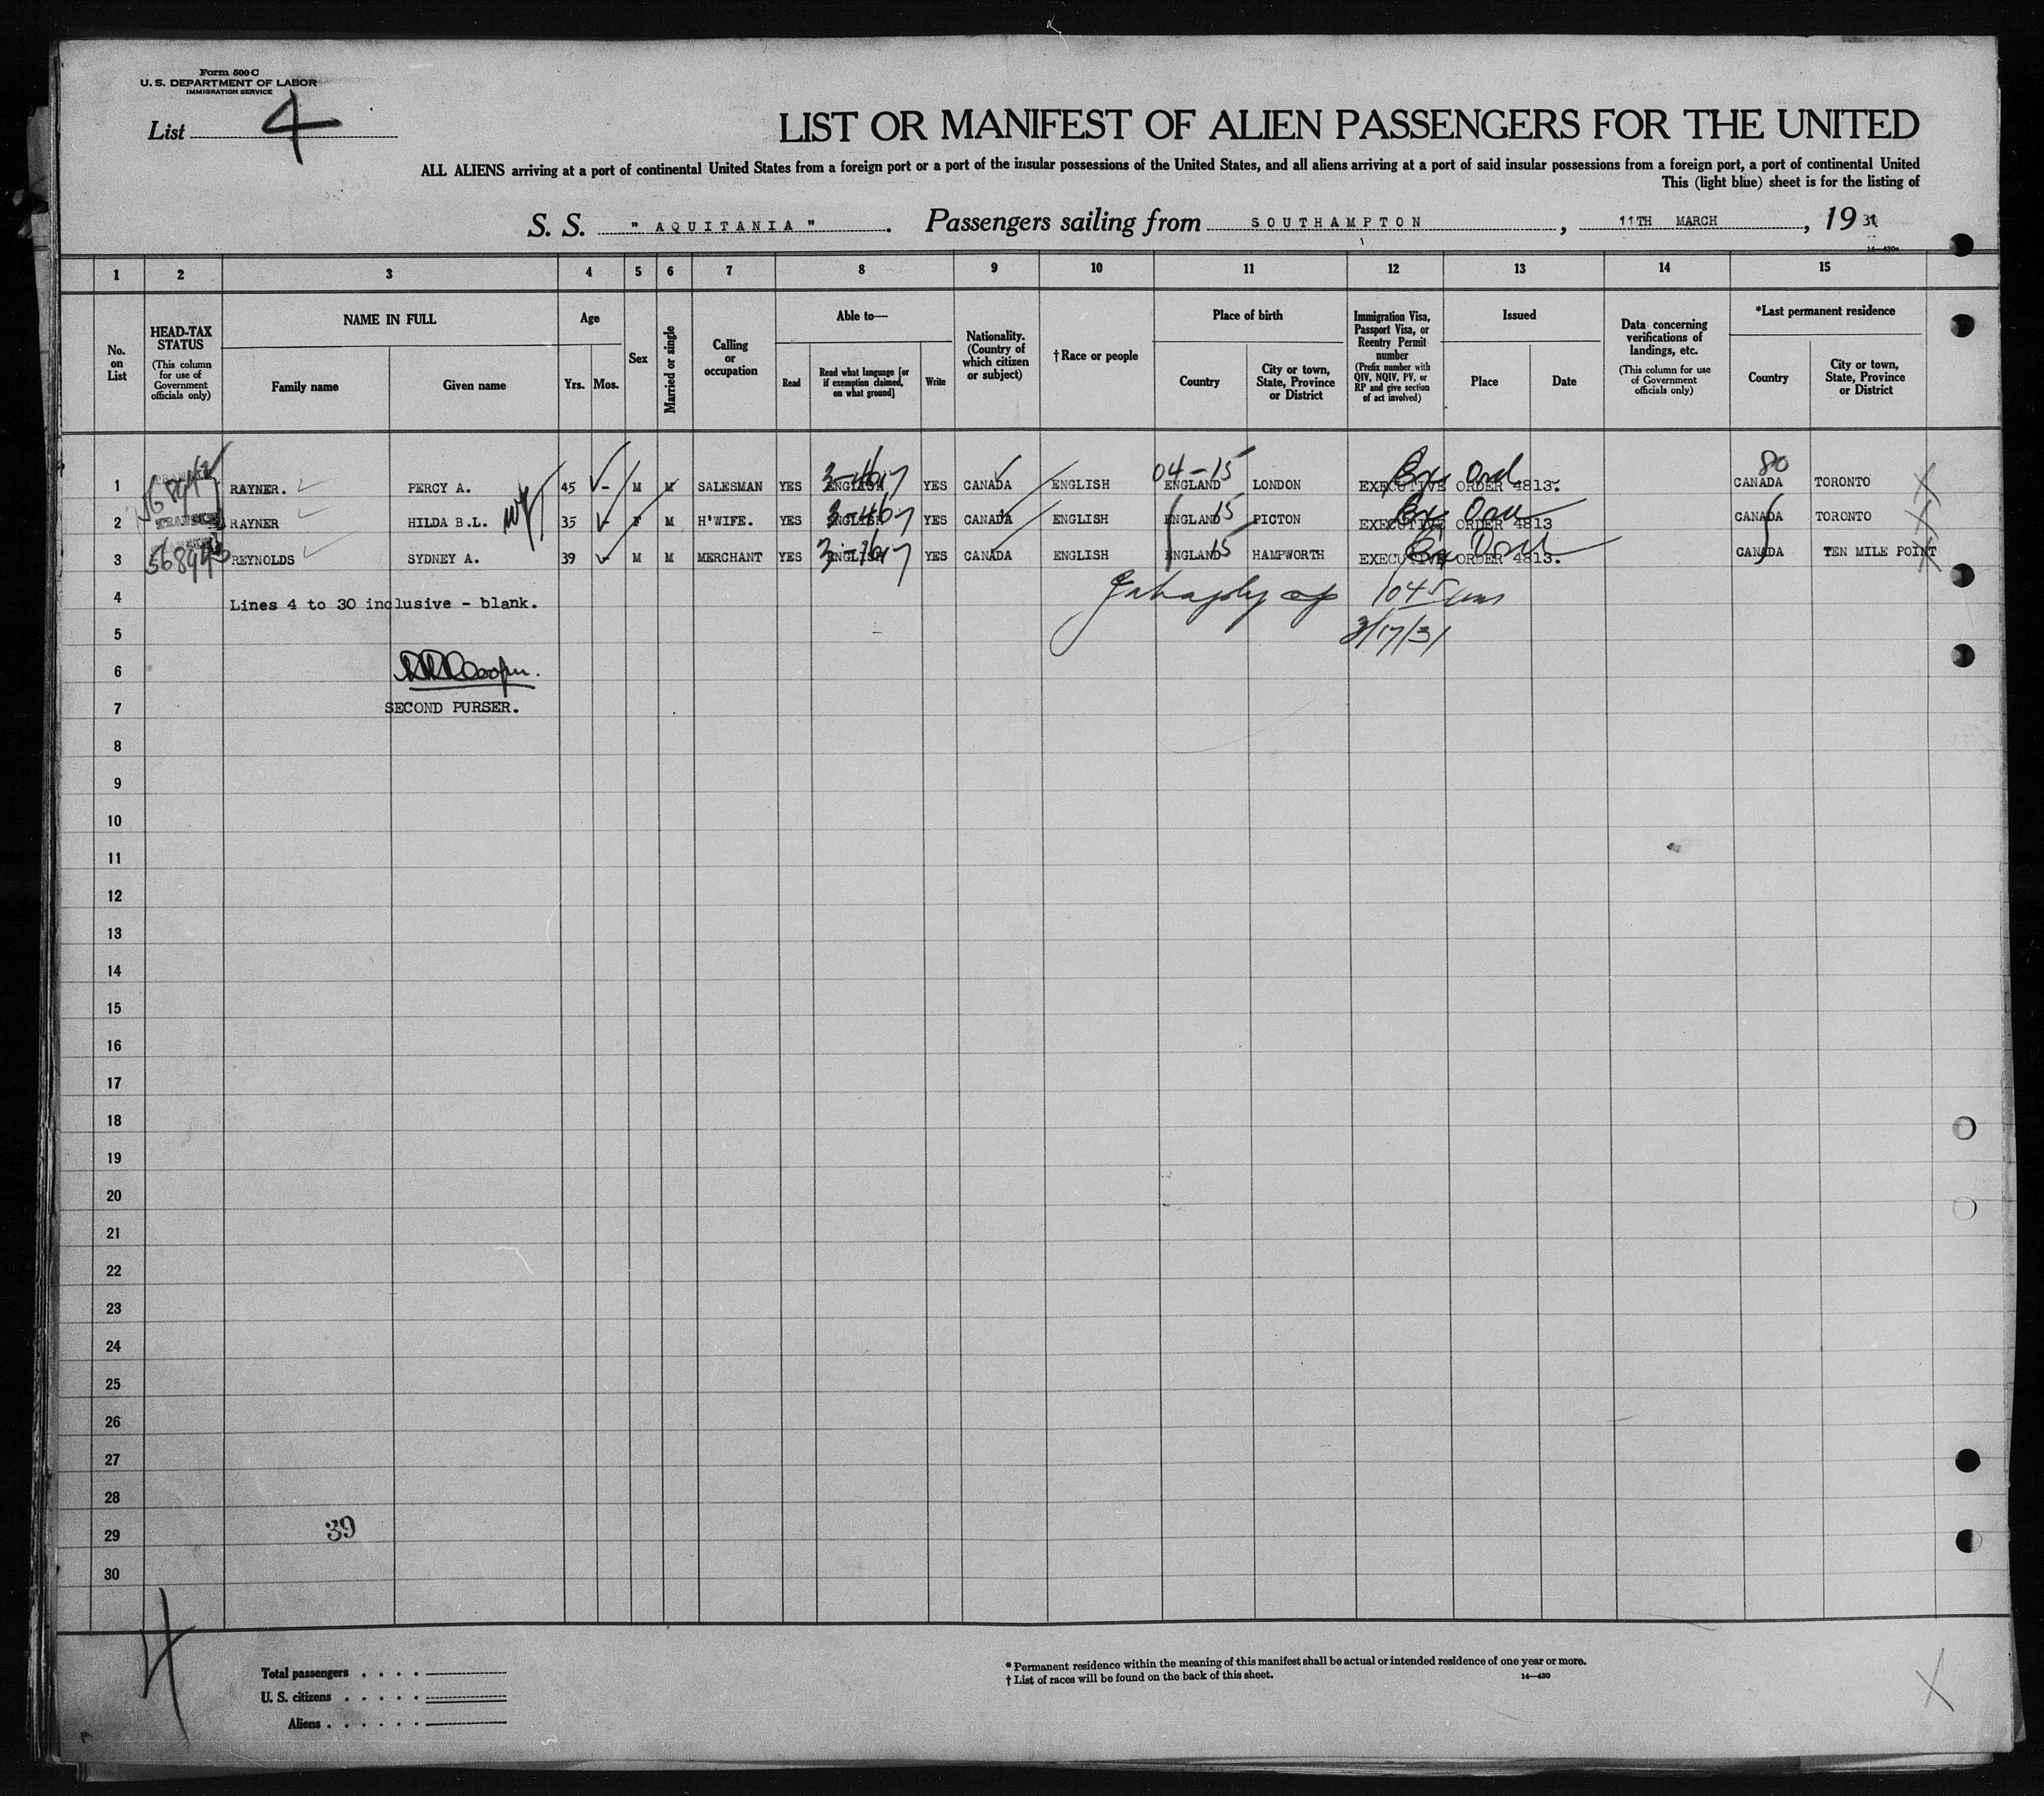 Form 500 C
U. S. DEPARTMENT OF LABOR
IMMIGRATION SERVICE
List 4
LIST OR MANIFEST OF ALIEN PASSENGERS FOR THE UNITED
ALL ALIENS arriving at a port of continental United States from a foreign port or a port of the insular possessions of the United States, and all aliens arriving at a port of said insular possessions from a foreign port, a port of continental United
This (light blue) sheet is for the listing of
S. S. "AQUITANIA". Passengers sailing from SOUTHAMPTON, 11TH MARCH, 1931
14—430a
1 2 3 4 5 6 7 8 9 10 11 12 13 14 15
No. on List
HEAD-TAX STATUS
(This column for use of Government officials only)
NAME IN FULL
Family name
Given name
Age
Yrs. Mos.
Sex
Married or single
Calling or occupation
Able to—
Read
Read what language [or if exemption claimed, on what ground]
Write
Nationality. (Country of which citizen or subject)
†Race or people
Place of birth
Country
City or town, State, Province or District
Immigration Visa, Passport Visa, or Reentry Permit number
(Prefix number with QIV, NQIV, PV, or RP and give section of act involved)
Issued
Place
Date
Data concerning verifications of landings, etc.
(This column for use of Government officials only)
*Last permanent residence
Country
City or town, State, Province or District
04-15 Ex Ord 80
1 RAYNER. PERCY A. 45 - M M SALESMAN YES ENGLISH YES CANADA ENGLISH ENGLAND LONDON EXECUTIVE ORDER 4813. CANADA TORONTO
2 RAYNER HILDA B.L. 35 - F M H'WIFE. YES ENGLISH YES CANADA ENGLISH ENGLAND 15 PICTON EXECUTIVE ORDER 4813 CANADA TORONTO
3 REYNOLDS SYDNEY A. 39 - M M MERCHANT YES ENGLISH YES CANADA ENGLISH ENGLAND 15 HAMPWORTH EXECUTIVE ORDER 4813. CANADA TEN MILE POINT
4 Lines 4 to 30 inclusive - blank.
5 3/17/31
6
7 SECOND PURSER.
8
9
10
11
12
13
14
15
16
17
18
19
20
21
22
23
24
25
26
27
28
29 39
30
4
Total passengers
U. S. citizens
Aliens
* Permanent residence within the meaning of this manifest shall be actual or intended residence of one year or more.
† List of races will be found on the back of this sheet.
14—430